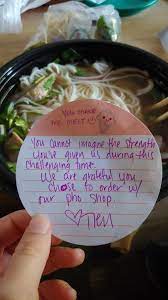 You make
me MELT
You cannot imagine the strength
you've given us during this
challenging time.
We are grateful you
chose to order w/
our pho shop.